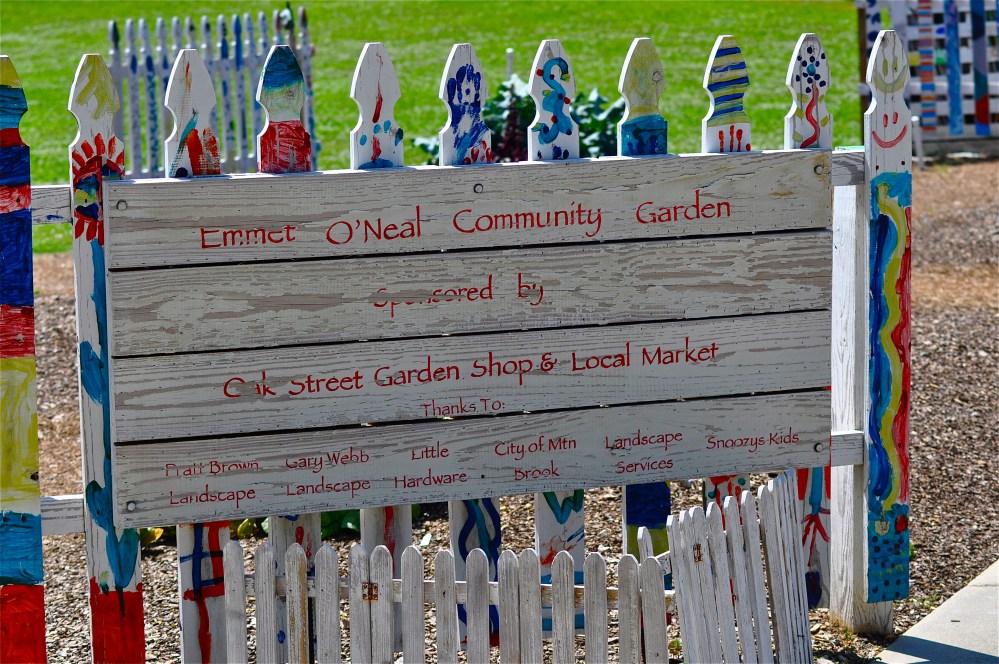 Emmet O'Neal Community Garden
Sponsored by
Oak Street Garden Shop & Local Market
Thanks To:
Pratt Brown Landscape
Gary Webb Landscape
Little Hardware
City of Mtn Brook
Landscape Services
Snoozys Kids